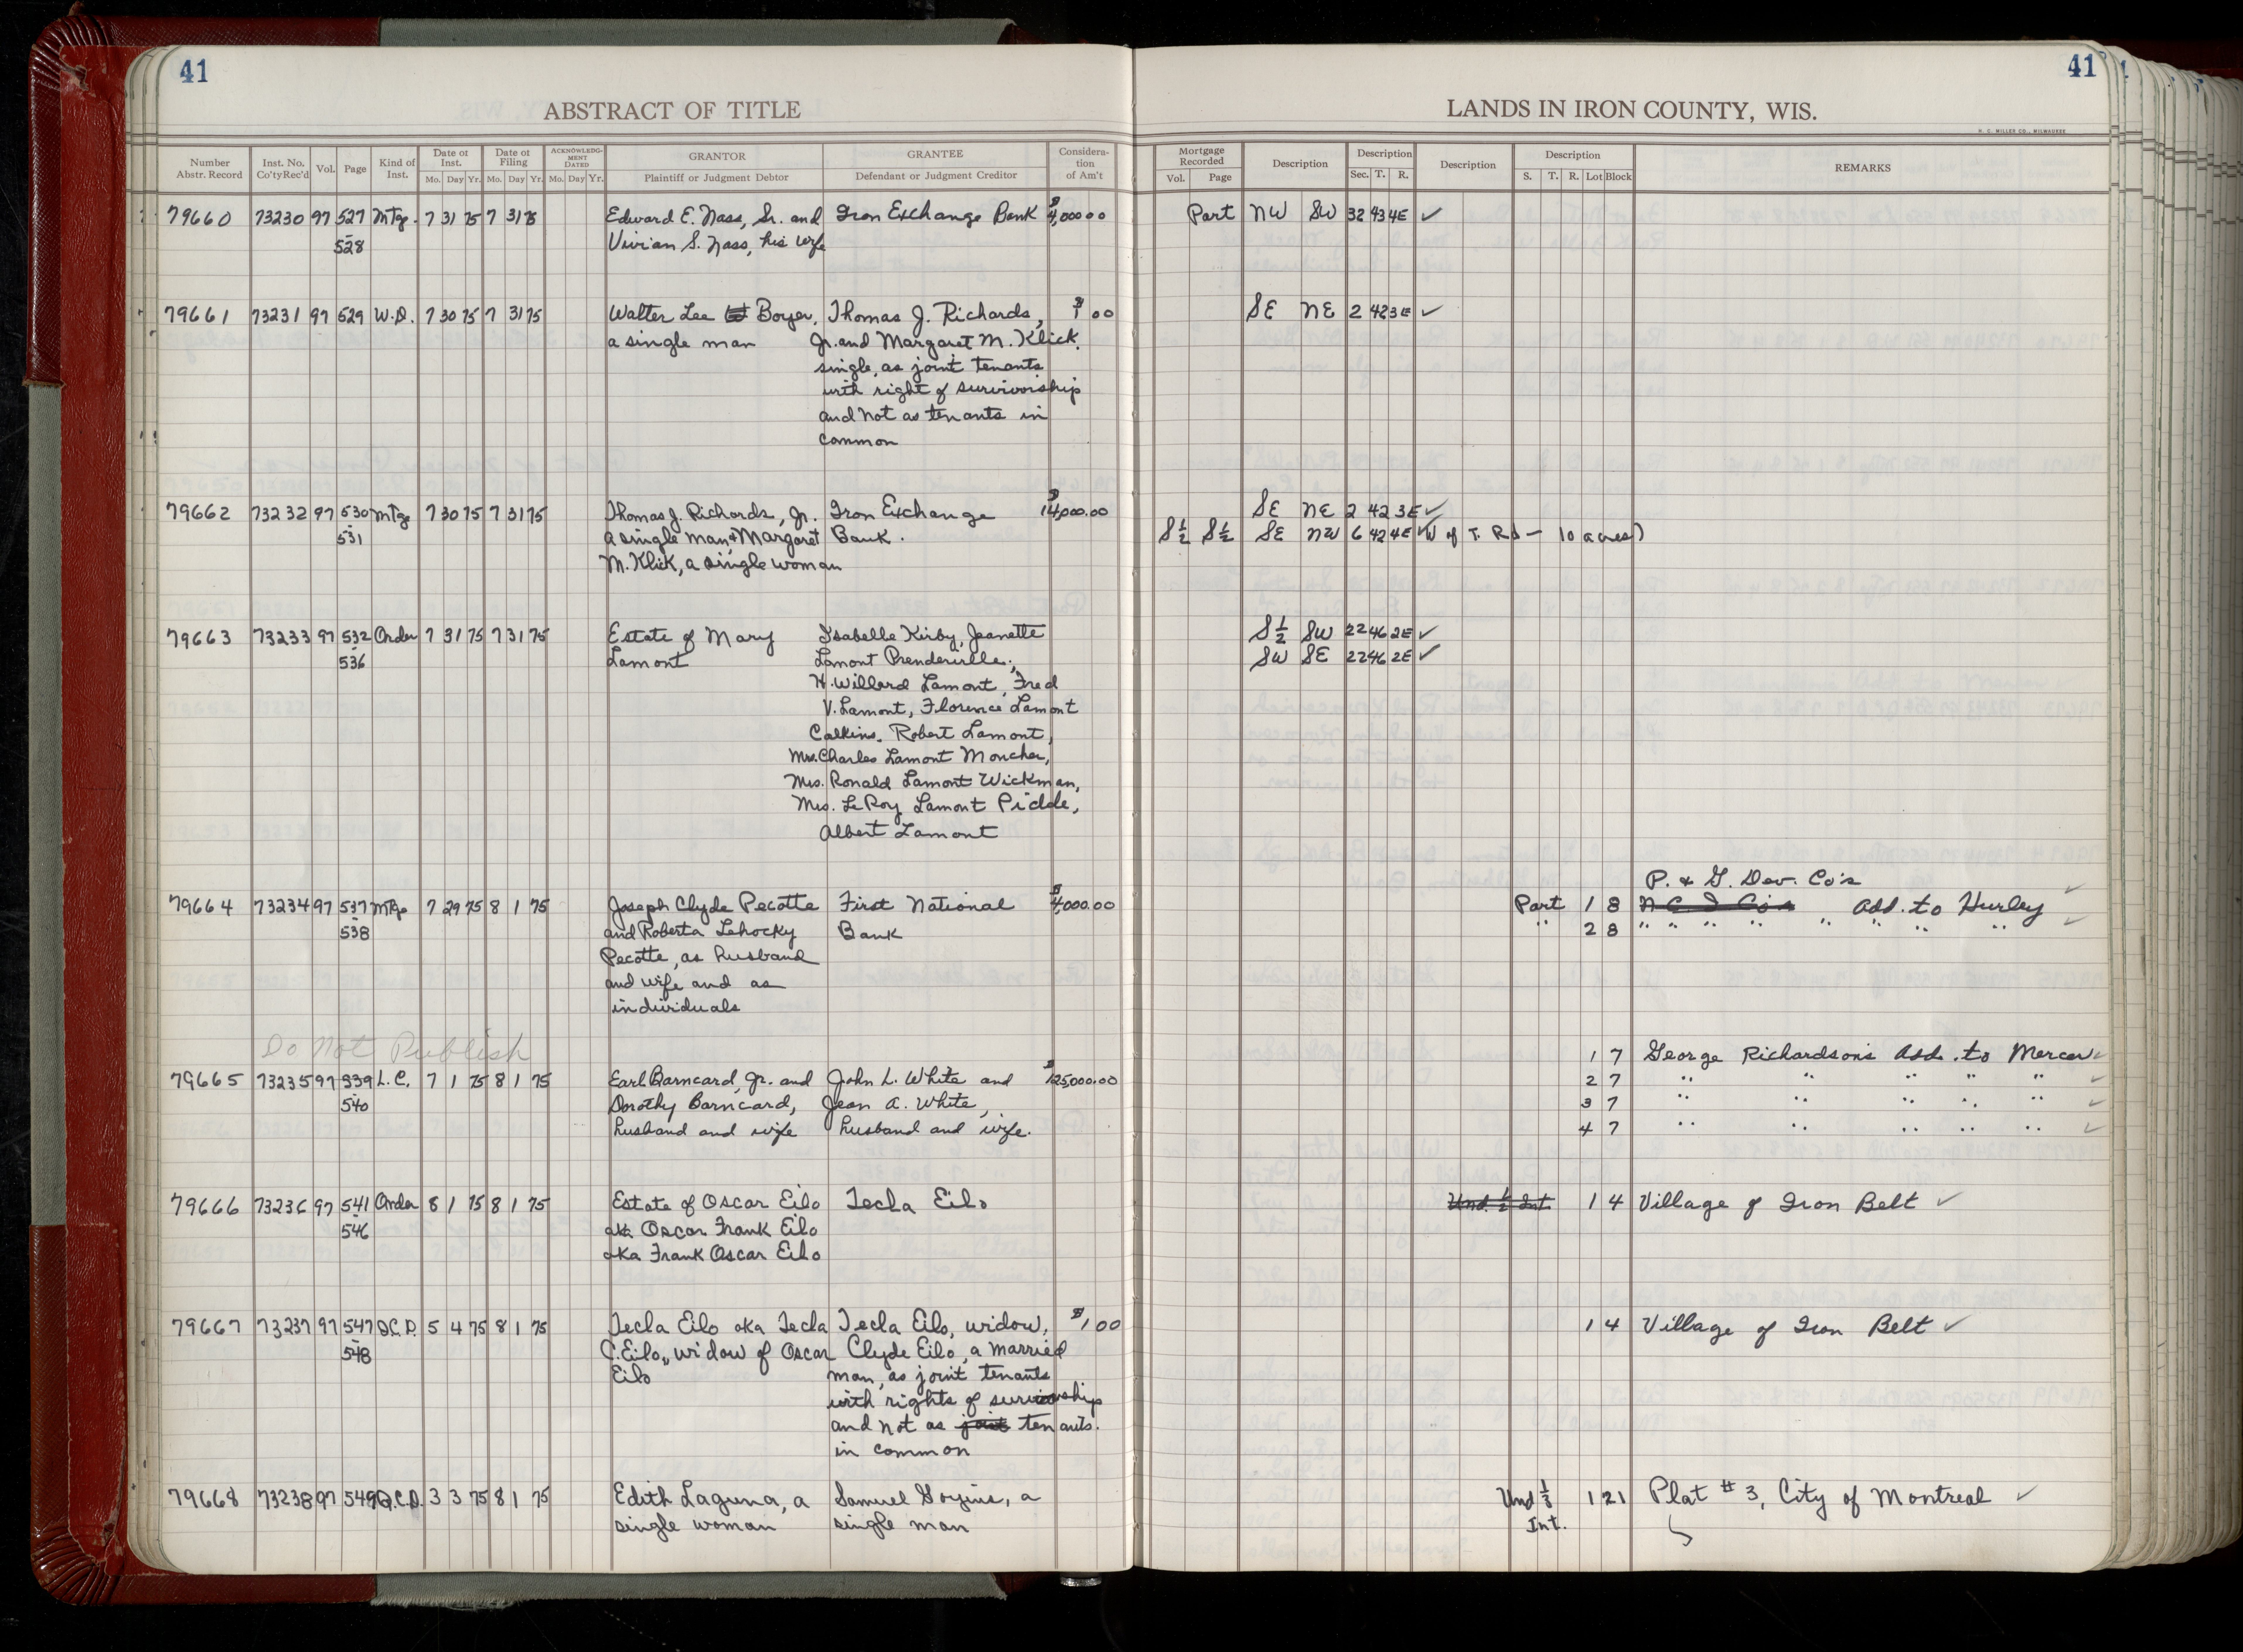 41
41
ABSTRACT OF TITLE
LANDS IN IRON COUNTY, WIS.
H. C. MILLER CO., MILWAUKEE
Number Abstr. Record
Inst. No. Co'ty Rec'd
Vol.
Page
Kind of Inst.
Date of Inst.
Mo. Day Yr.
Date of Filing
Mo. Day Yr.
ACKNOWLEDG-MENT DATED
Mo. Day Yr.
GRANTOR
Plaintiff or Judgment Debtor
GRANTEE
Defendant or Judgment Creditor
Considera-tion of Am't
Mortgage Recorded
Vol. Page
Description
Description
Sec. T. R.
Description
Description
S. T. R. Lot Block
REMARKS
79660 73230 97 527 Mtg. 7 31 75 7 31 75 Edward E. Nass, Sr. and Iron Exchange Bank $4,000 00 Part NW SW 32 43 4E ✓
-528 Vivian S. Nass, his wife
79661 73231 97 529 W.D. 7 30 75 7 31 75 Walter Lee Boyer, Thomas J. Richards, $1 00 SE NE 2 42 3E ✓
a single man Jr. and Margaret M. Klick,
single, as joint tenants
with right of survivorship
and not as tenants in
common
79662 73232 97 530 Mtg 7 30 75 7 31 75 Thomas J. Richards, Jr. Iron Exchange $14,000.00 SE NE 2 42 3E ✓
-531 a single man & Margaret Bank. S½ S½ SE NW 6 42 4E ✓ (W of T. Rd - 10 acres)
M. Klick, a single woman
79663 73233 97 532 Order 7 31 75 7 31 75 Estate of Mary Isabelle Kirby, Jeanette S½ SW 22 46 2E ✓
-536 Lamont Lamont Prenderville, SW SE 22 46 2E ✓
H. Willard Lamont, Fred
V. Lamont, Florence Lamont
Calkins, Robert Lamont,
Mrs. Charles Lamont Moncher,
Mrs. Ronald Lamont Wickman,
Mrs. LeRoy Lamont Pidde,
Albert Lamont
P. & G. Dev. Co's ✓
79664 73234 97 537 Mtg 7 29 75 8 1 75 Joseph Clyde Pecotte First National $4,000.00 Part 1 8 N C I Co's " Add. to Hurley
-538 and Roberta Lehocky Bank " 2 8 " " " " " " " " ✓
Pecotte, as husband
and wife and as
individuals
Do Not Publish
1 7 George Richardson's Add. to Mercer ✓
79665 73235 97 539 L.C. 7 1 75 8 1 75 Earl Barncard, Jr. and John L. White and $125,000.00 2 7 " " " " " ✓
-540 Dorothy Barncard, Jean A. White, 3 7 " " " " " ✓
husband and wife husband and wife. 4 7 " " " " " ✓
79666 73236 97 541 Order 8 1 75 8 1 75 Estate of Oscar Eilo Tecla Eilo Und. ½ Int 1 4 Village of Iron Belt ✓
-546 aka Oscar Frank Eilo
aka Frank Oscar Eilo
79667 73237 97 547 Q.C.D. 5 4 75 8 1 75 Tecla Eilo aka Tecla Tecla Eilo, widow, $1,00 1 4 Village of Iron Belt ✓
-548 C. Eilo, widow of Oscar Clyde Eilo, a married
Eilo man, as joint tenants
with rights of survivorship
and not as joint tenants.
in common
79668 73238 97 549 Q.C.D. 3 3 75 8 1 75 Edith Laguna, a Samuel a Und ⅓ 1 21 Plat #3, City of Montreal ✓
single woman single man Int.